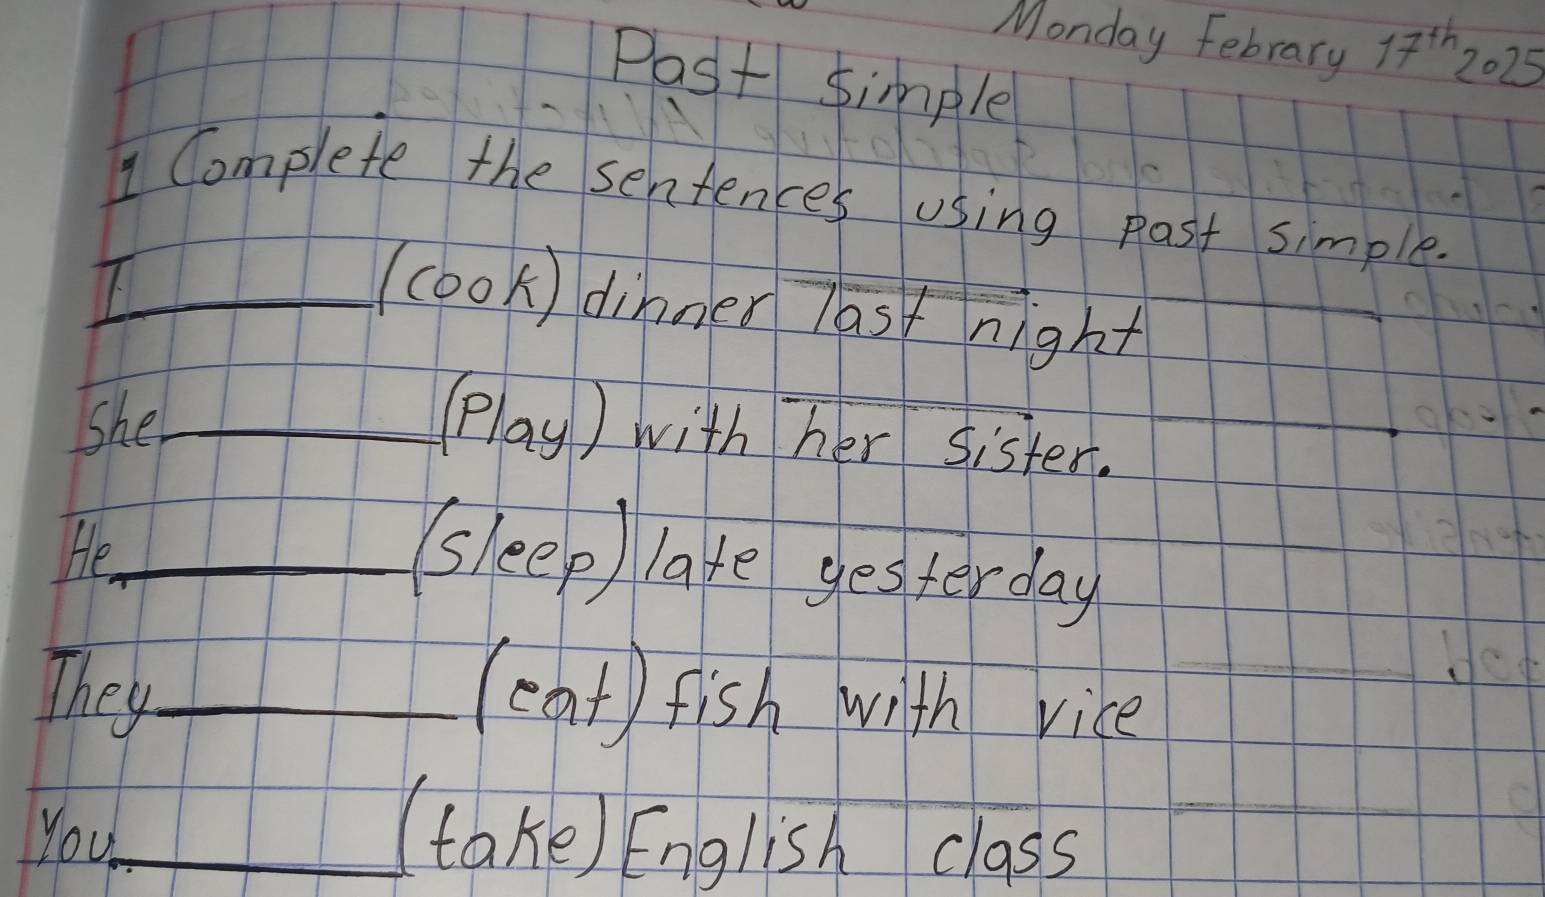 Monday Febrary 17th 2025
Past Simple
1 Complete the sentences using past simple.
I ________ (cook) dinner last night
She ________ (Play) with her sister.
He ________ (sleep) late yesterday
They ________ (eat) fish with rice
You ________ (take) English class